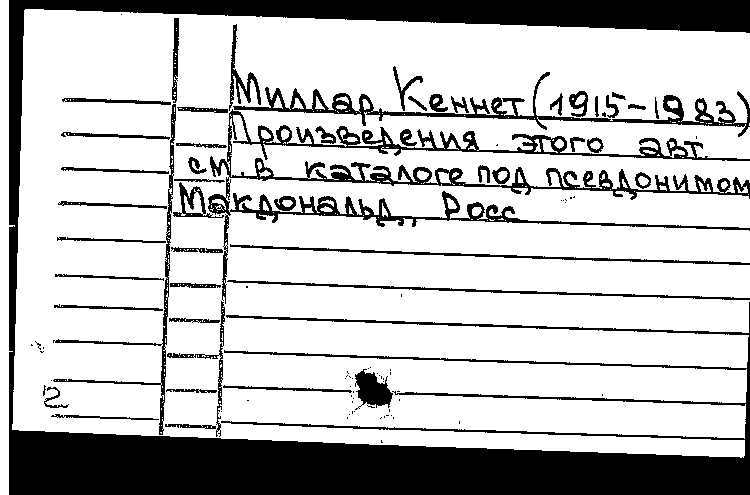 Миллар, Кеннет (1915-1983)
Произведения этого авт.
см. в каталоге под псевдонимом
Макдональд, Росс
2